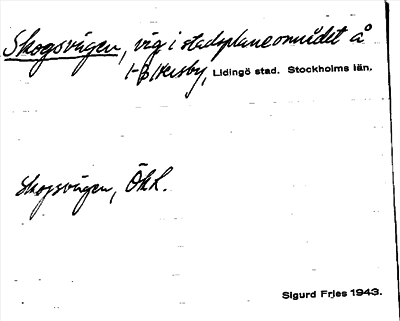 Skogsvägen, väg i stadsplaneområdet å
Hersby, Lidingö stad. Stockholms län.
Skogsvägen, ÖkL.
Sigurd Fries 1943.